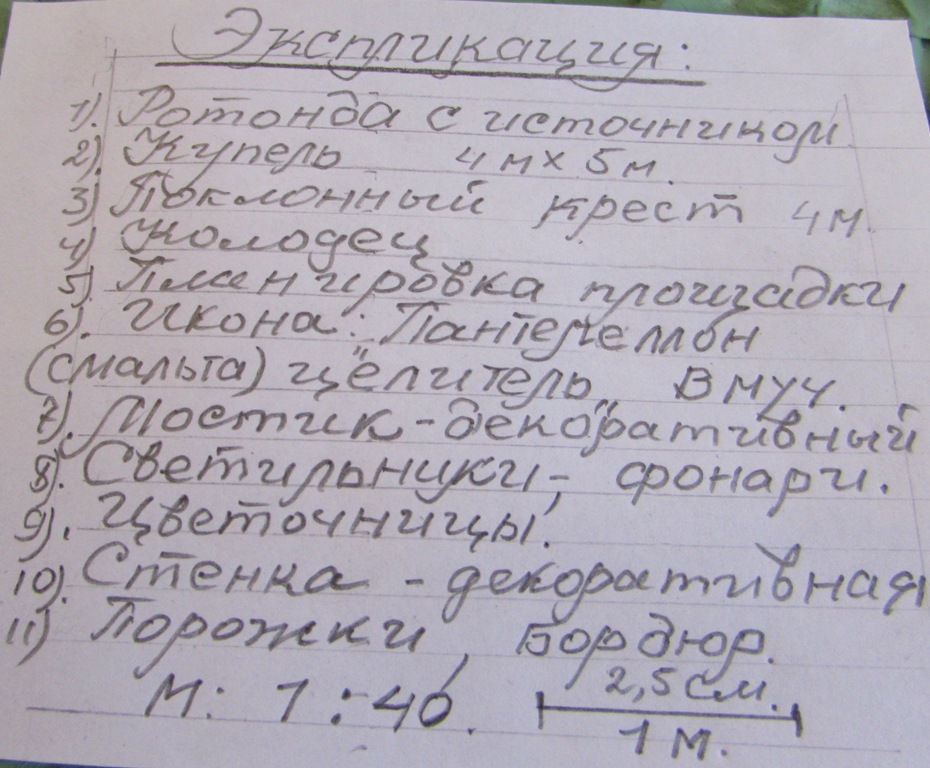 Экспликация:
1). Ротонда с источником
2). Купель 4 м х 5 м.
3) Поклонный крест 4 м.
4) Колодец
5) Планировка площадки
6). Икона: Пантелеймон
(смальта) "целитель" В муч.
7). Мостик - декоративный
8). Светильники - фонари.
9). Цветочницы.
10). Стенка - декоративная
11) Порожки, Бордюр.
М: 1 : 40. 2,5 см.
1 м.